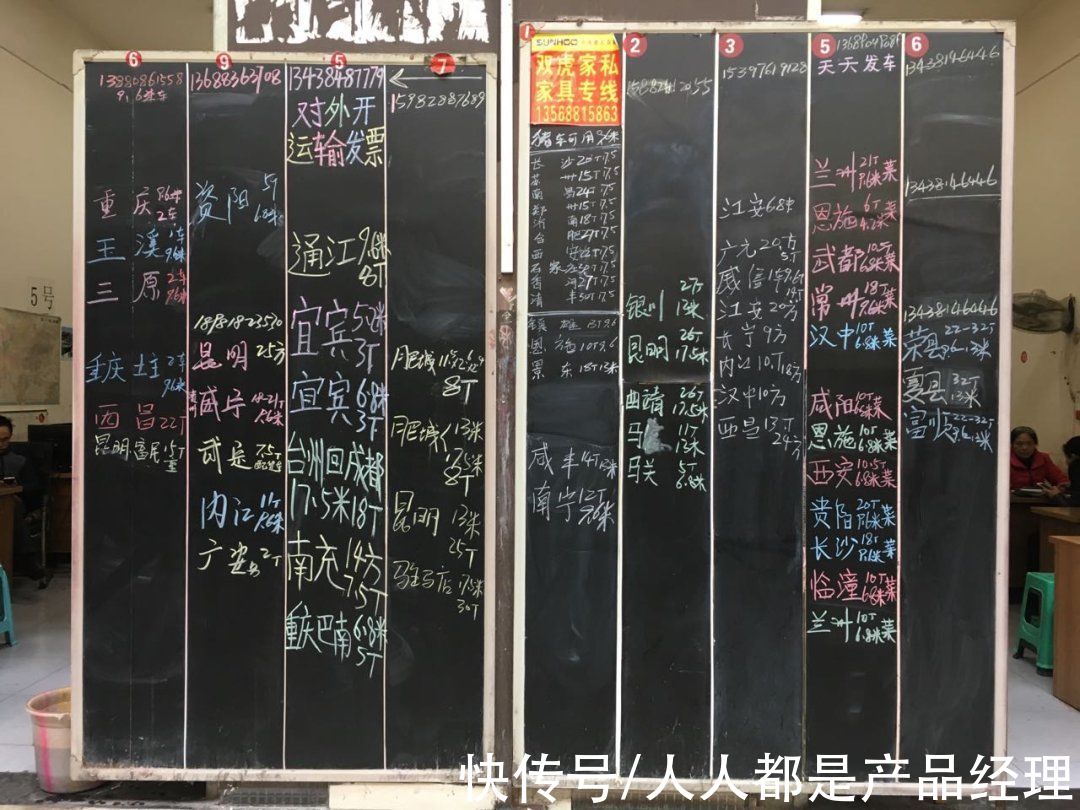 5号
6
13880861558
重庆 8.6米 2车
玉溪 1车 9.6米
三原 2车 9.6米
重庆 土主 2车 9.6米
西昌 22T
昆明 富民 15T
9
13688363708
资阳 5T 6.8米
18981823570
昆明 25方
咸宁 9.6米
武定 7.5T
内江 1T 9.6米
广安 2T
5
13438487779
对外开
运输发票
通江 9.6米 8T
宜宾 5.2米 3T
宜宾 6.8米 3T
台州回成都
17.5米 18T
南充 14方 7.5T
重庆巴南 6.8米 5T
7
15982887689
肥城 8T
肥城 13米 17.5米 8T
昆明 13米 25T
驻马店 17.5米 30T
1
SUNHOO
双虎家私
家具专线
13568815863
猪车可用 9.6米
长沙 20T 17.5
苏州 15T 17.5
南昌 24T 17.5
郑州 15T 17.5
济南 18T 17.5
合肥 27T 17.5
西安
石家庄
香河 27T 17.5
清丰 30T 17.5
恩施 10T 9.6
景东 18T 13米
咸丰 14T 13米
南宁 12T 9.6米
2
银川 27T 13米
昆明 26T 17.5米
曲靖 26T 17.5米
马 11T 13米
马关 5T 6.8米
3
15397619128
江安 6.8米
广元 20方 5T
威信 15方 9.6 4T
江安 20方
长宁 9方
内江 10T 18方
汉中 10方
西昌 13T 24方
5
天天发车
兰州 21T 9.6米 菜
恩施 6T 4.2米 菜
武都 10.5T 6.8米 菜
常州 18T 9.6米 菜
汉中 10T 6.8米 菜
咸阳 10T 6.8米 菜
恩施 10T 6.8米 菜
西安 10.5T 6.8米 菜
贵阳 20T 9.6米 菜
长沙 18T 9.6米 菜
临潼 10T 6.8米 菜
兰州 10T 6.8米 菜
6
13438146446
13438146446
13438146446
荣县 22-32T 9.6-13米
夏县 32T 13米
富顺 22-32T 9.6-13米
快传号/人人都是产品经理